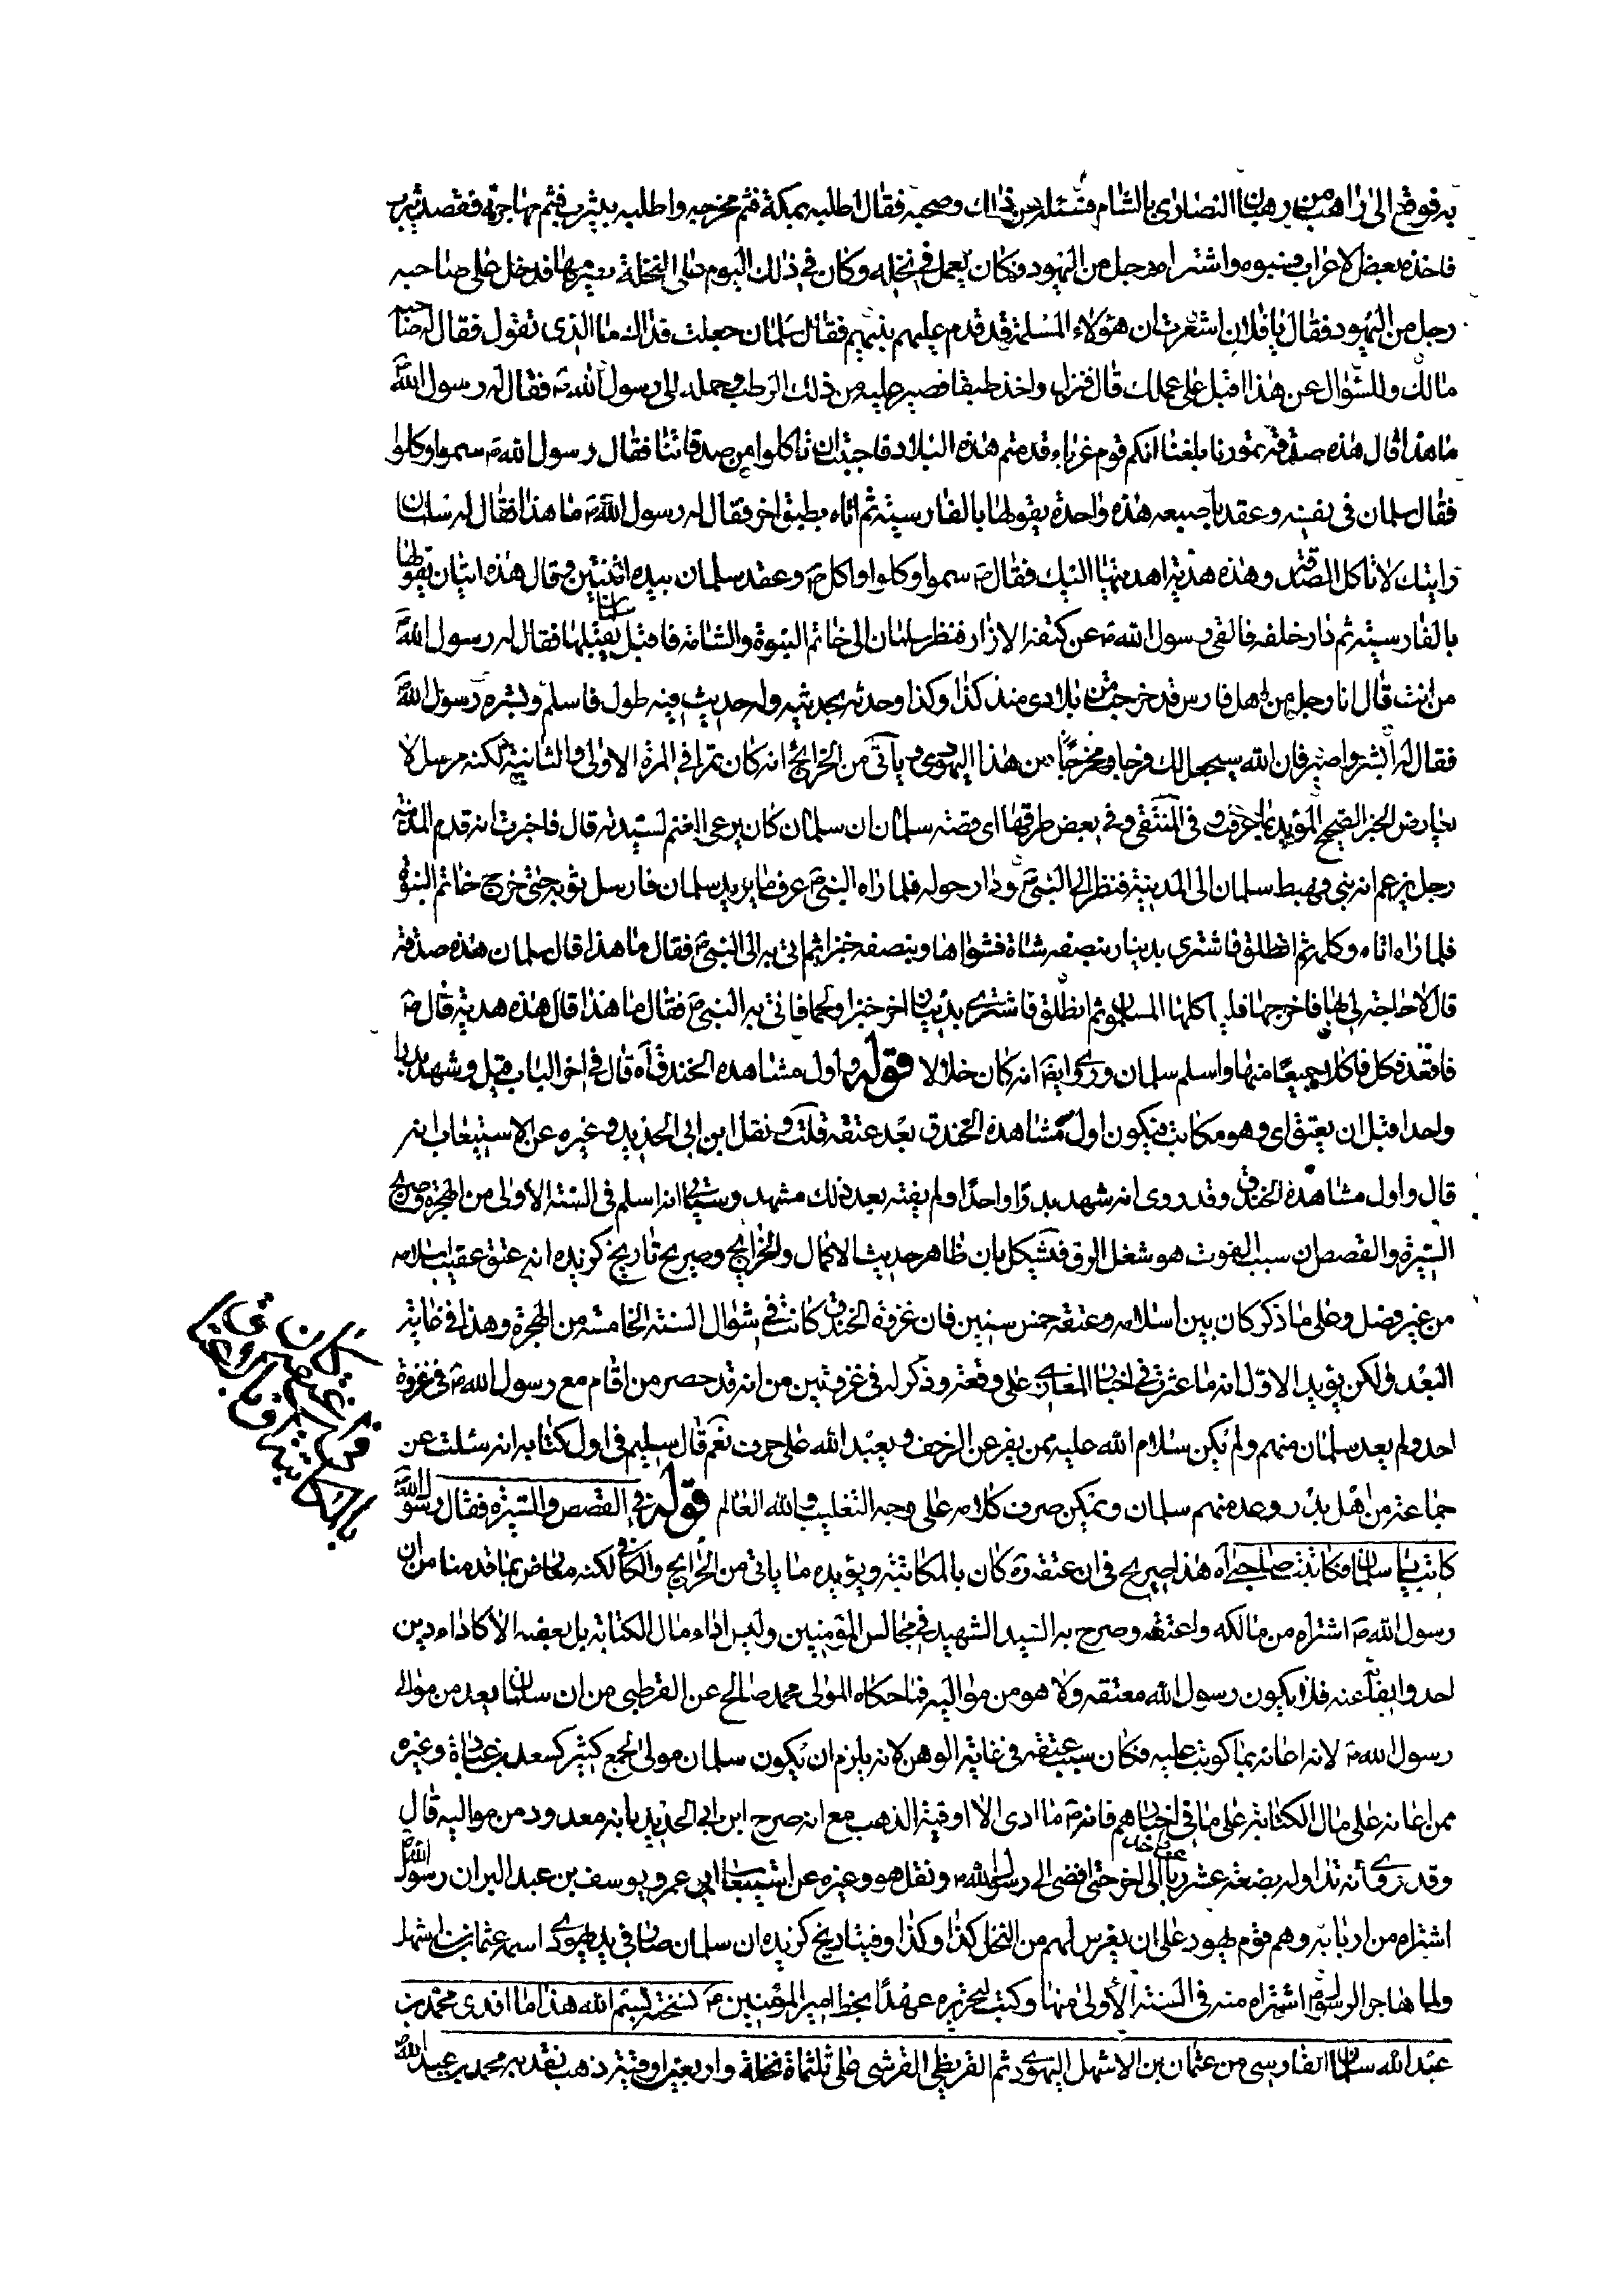 به فوقع الى راهب من رهبان النصارى بالشام فسئله عن ذلك وصحبه فقال اطلبه بمكة فثم مخرجه واطلبه بيثرب فثم مهاجرته فقصد يثرب
فاخذه بعض الاعراب فسبوه واشتراه رجل من اليهود فكان يعمل في نخله وكان في ذلك اليوم على النخلة يصرمها فدخل على صاحبه
رجل من اليهود فقال يا فلان اشعرت ان هؤلاء المسلمة قد قدم عليهم نبيهم فقال سلمان جعلت فداك ما الذى تقول فقال له صاحبه
مالك وللسؤال عن هذا اقبل على عملك قال فنزل واخذ طبقا فصير عليه من ذلك الرطب وحمله الى رسول الله ص فقال له رسول الله ص
ما هذا قال هذه صدقة تمورنا بلغنا انكم قوم غرباء قدمتم هذه البلاد فاحببت ان تاكلوا من صدقاتنا فقال رسول الله ص سموا وكلوا
فقال سلمان في نفسه وعقد باصبعه هذه واحدة يقولها بالفارسية ثم اتاه بطبق اخر فقال له رسول الله ص ما هذا فقال له سلمان
رايتك لا تاكل الصدقة وهذه هدية اهديتها اليك فقال ص سموا وكلوا واكل ص وعقد سلمان بيده اثنتين وقال هذه اثنتان يقولها
بالفارسية ثم دار خلفه فالقى رسول الله ص عن كتفه الازار فنظر سلمان الى خاتم النبوة والشامة فاقبل يقبلها فقال له رسول الله ص
من انت قال انا رجل من اهل فارس قد خرجت من بلادى منذ كذا وكذا وحدثه بحديثه وله حديث فيه طول فاسلم وبشره رسول الله ص
فقال له ابشر واصبر فان الله سيجعل لك فرجا ومخرجا من هذا اليهودى وياتى من الخرائج انه كان تمرا في المرة الاولى والثانية لكنه مرسل لا
يعارض الخبر الصحيح المؤيد بما عرفت وفي المنتقى وفي بعض طرقها اى قصة سلمان ان سلمان كان يرعى الغنم لسيدته قال فاخبرت انه قدم المدينة
رجل يزعم انه نبى فهبط سلمان الى المدينة فنظر الى النبى ص ودار حوله فلما راه النبى ص عرف ما يريد سلمان فارسل ثوبه حتى خرج خاتم النبوة
فلما راه اتاه وكلمه ثم انطلق فاشترى بدينار بنصفه شاة فشواها وبنصفه خبزا ثم اتى به الى النبى ص فقال ما هذا قال سلمان هذه صدقة
قال لا حاجة لى بها فاخرجها فلياكلها المسلمون ثم انطلق فاشترى بدينار اخر خبزا ولحما فاتى به النبى ص فقال ما هذا قال هذه هدية قال ص
فاقعد فكل فاكلا جميعا منها واسلم سلمان وروى ايضا انه كان خلالا قوله واول مشاهده الخندق اه قال في اخر الباب قيل وشهد بدرا
واحدا قبل ان يعتق اى وهو مكاتب فيكون اول مشاهده الخندق بعد عتقه قلت ونقل ابن ابى الحديد وغيره عن الاستيعاب انه
قال واول مشاهده الخندق وقد روى انه شهد بدرا واحدا ولم يفته بعد ذلك مشهد وسيما انه اسلم في السنة الاولى من الهجرة وصريح
السيرة والقصص ان سبب الفوت هو شغل الرق فيشكل بان ظاهر حديث الاكمال والخرايج وصريح تاريخ كزيده انه عتق عقيب اسلامه
من غير فصل وعلى ما ذكر كان بين اسلامه وعتقه خمس سنين فان غزوة الخندق كانت في شوال السنة الخامسة من الهجرة وهذا في غاية
البعد ولكن يؤيد الاول انه ما عثرت في اخبار المغازى على وقعة وذكر له في غزوتين من انه قد حصر من اقام مع رسول الله ص في غزوة
احد ولم يعد سلمان منهم ولم يكن سلام الله عليه ممن يفر عن الزحف ويعبد الله على حرف نعم قال سليم في اول كتابه انه سئلت عن
جماعة من اهل بدر وعد منهم سلمان ويمكن صرف كلامه على وجه التغليب والله العالم قوله في القصص والسيرة فقال رسول الله ص
كاتب يا سلمان فكاتبت صاحبى اه هذا صريح في ان عتقه ره كان بالمكاتبة ويؤيده ما ياتى من الخرايج والكافى لكنه معارض بما قدمنا من ان
رسول الله ص اشتراه من مالكه واعتقه وصرح به السيد الشهيد في مجالس المؤمنين وليس اداء مال الكتابة بل بعضه الا كاداء دين
احد وايفائه عنه فلا يكون رسول الله معتقه ولا هو من مواليه فما حكاه المولى محمد صالح عن القرطبى من ان سلمان يعد من موالى
رسول الله ص لانه اعانه بما كوتب عليه فكان سبب عتقه في غاية الوهن لانه يلزم ان يكون سلمان مولى لجمع كثير كسعد بن عبادة وغيره
ممن اعانه على مال الكتابة على ما في اخبارهم فانه ص ما ادى الا اوقية الذهب مع انه صرح ابن ابى الحديد بانه معدود من مواليه قال
وقد روى انه تداوله بضعة عشر ربا الى اخر حتى افضى الى رسول الله ص ونقل هو وغيره عن استيعاب ابى عمرو يوسف بن عبد البر ان رسول الله ص
اشتراه من اربابه وهم قوم يهود على ان يغرس لهم من النخل كذا وكذا وفي تاريخ كزيده ان سلمان صار في يد يهودى اسمه عثمان بن اشهل
ولما هاجر الرسول ص اشتراه منه في السنة الاولى منها وكتب لتحريره عهدا بخط امير المؤمنين ص نسخته بسم الله هذا ما افدى محمد بن
عبد الله سلمان الفارسى من عثمان بن الاشهل اليهودى ثم القريظى القرشى على ثلثماة نخلة واربعين اوقية ذهب نقد به محمد بن عبد الله ص